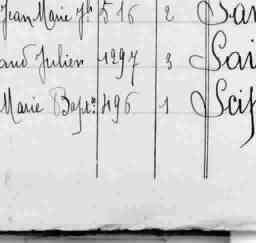 Jean Marie Jh 516 2 San
and Julien 1297 3 Sai
Marie Bapte 496 1 Scip